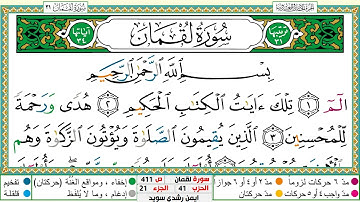 سُورَةُ لُقْمَانَ
ترتيبها ٣١
آياتها ٣٤
بِسْمِ ٱللَّهِ ٱلرَّحْمَٰنِ ٱلرَّحِيمِ
الٓمٓ ١ تِلْكَ ءَايَٰتُ ٱلْكِتَٰبِ ٱلْحَكِيمِ ٢ هُدًى وَرَحْمَةً
لِّلْمُحْسِنِينَ ٣ ٱلَّذِينَ يُقِيمُونَ ٱلصَّلَوٰةَ وَيُؤْتُونَ ٱلزَّكَوٰةَ وَهُم
مد ٦ حركات لزوما
مد ٢ أو ٤ أو ٦ جوازا
إخفاء، ومواقع الغنة (حركتان)
تفخيم
مد حركتان
إدغام، وما لا يُلفظ
قلقلة
سورة لقمان
ص 411
الحزب 41
الجزء 21
ايمن رشدي سويد